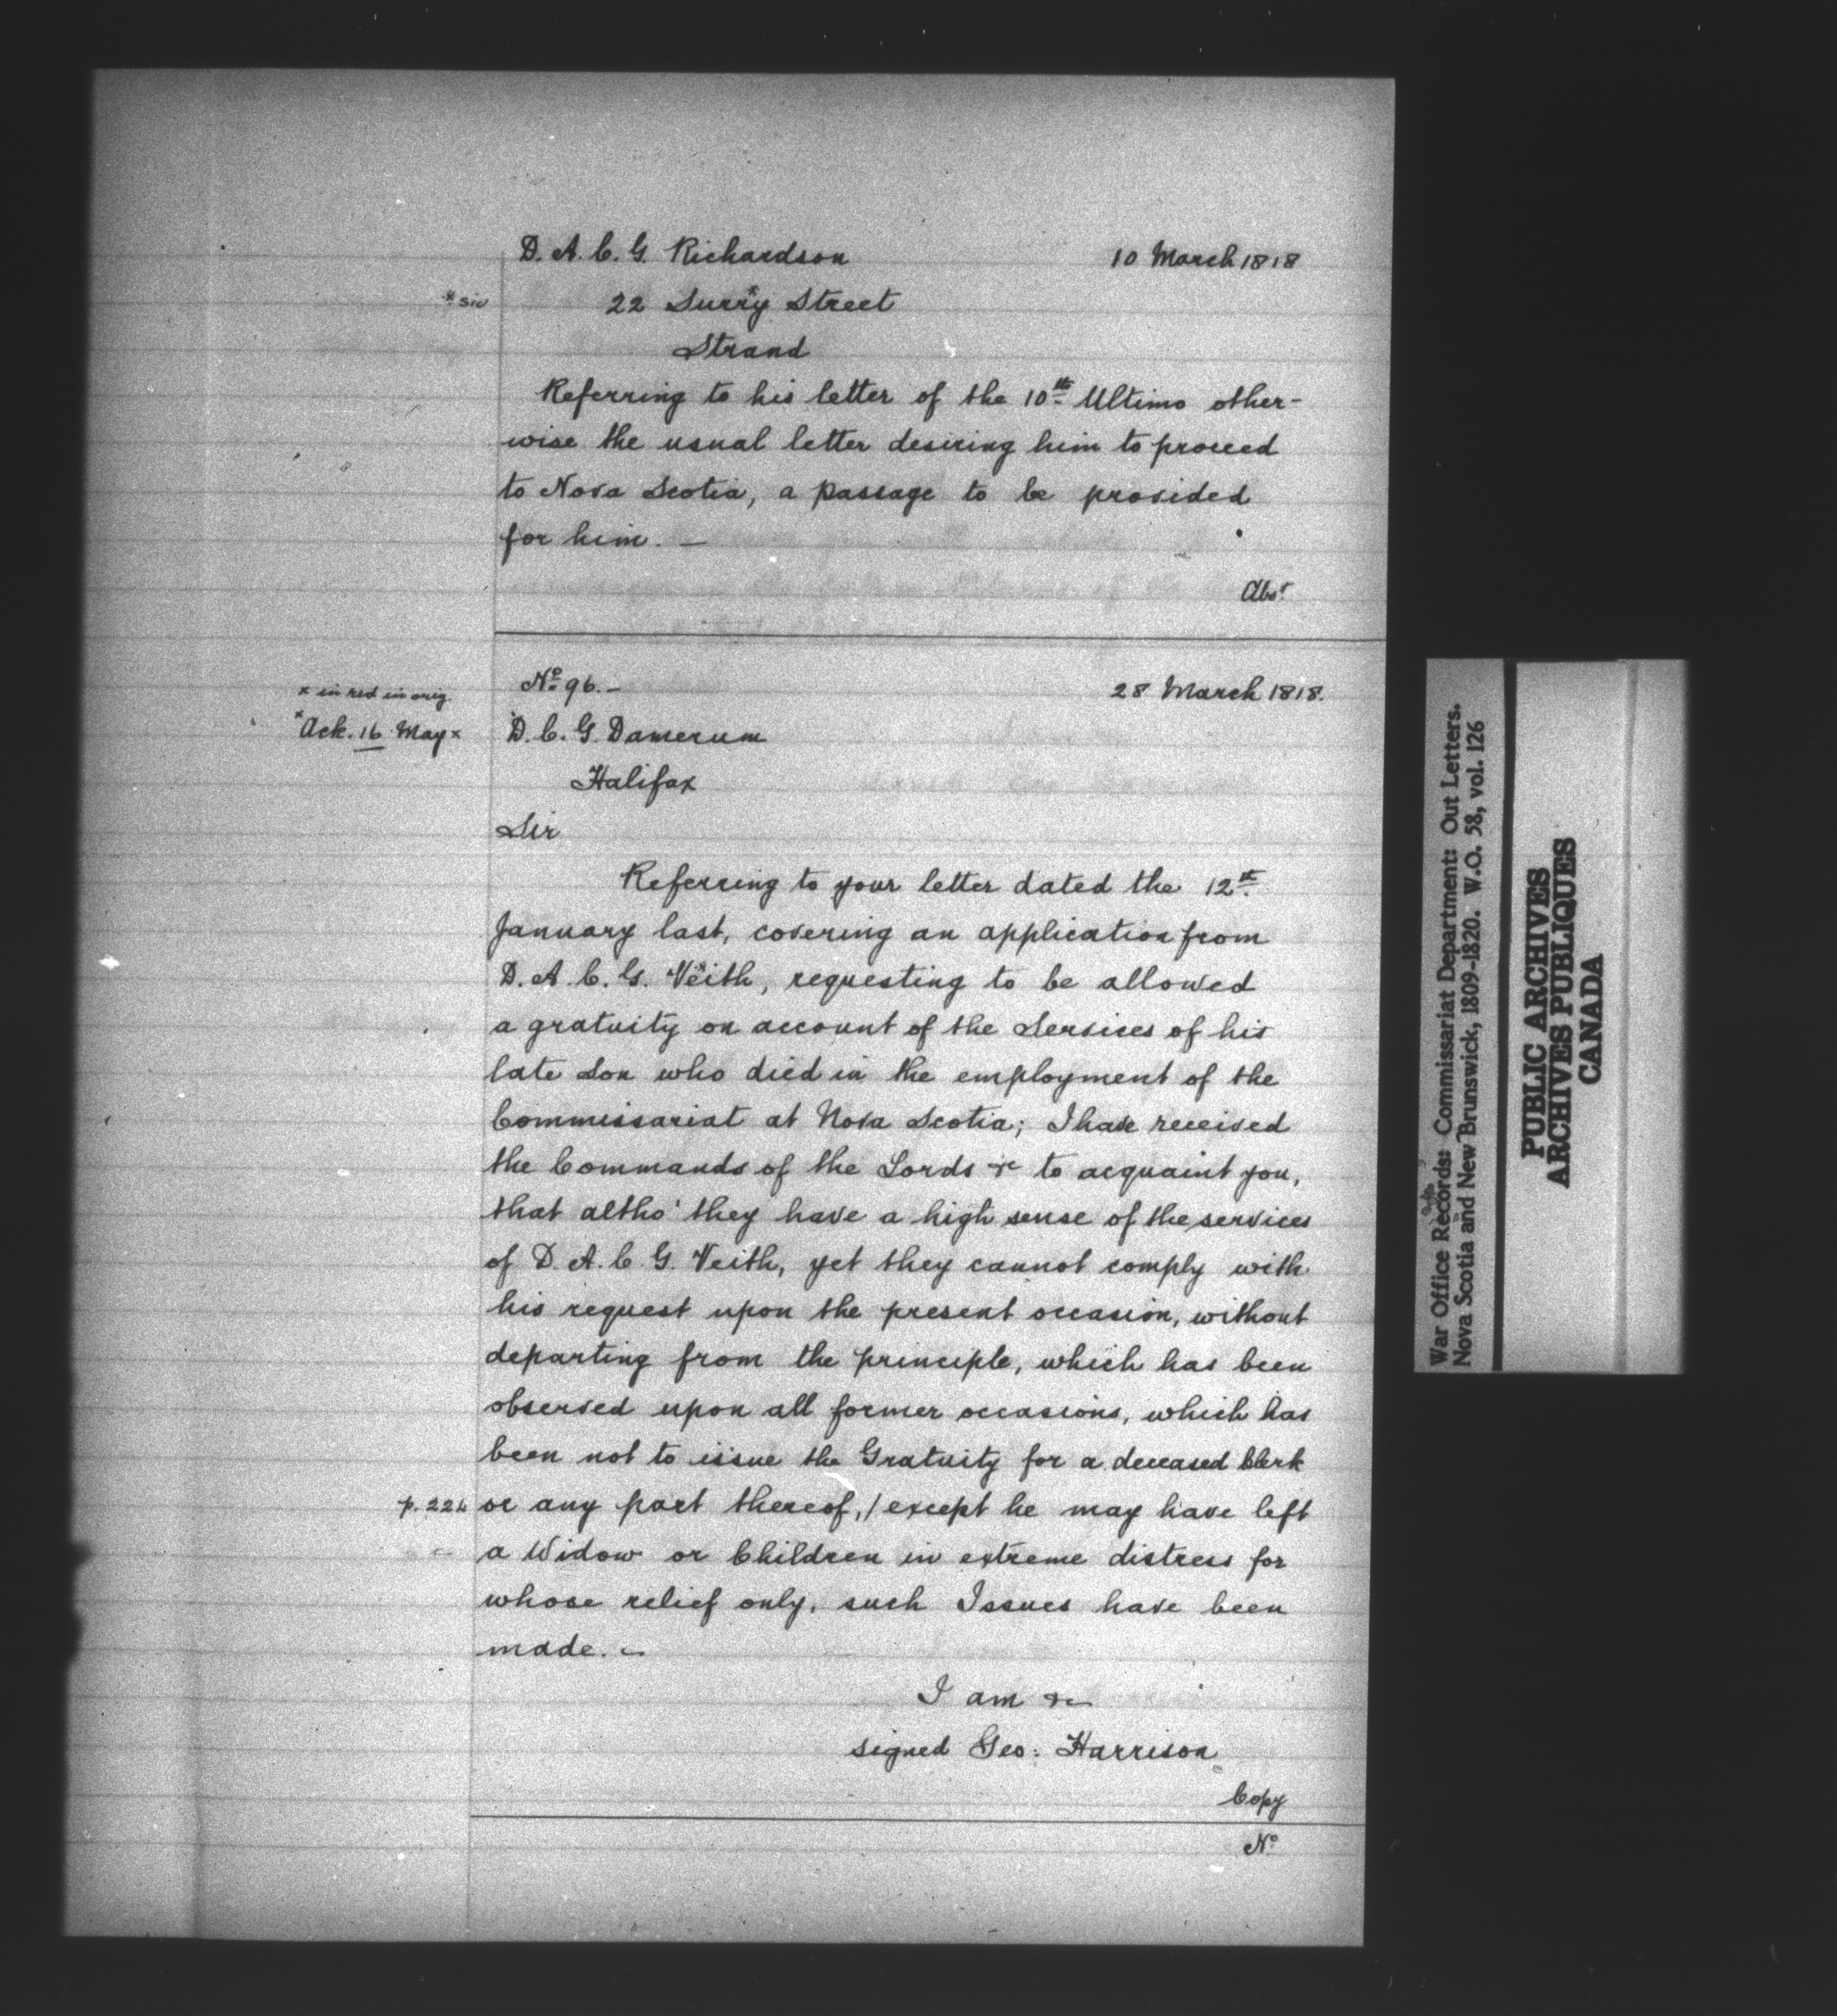 D. A. C. G. Richardson 10 March 1818
* sic 22 Surry* Street
Strand
Referring to his letter of the 10th Ultimo other-
wise the usual letter desiring him to proceed
to Nova Scotia, a passage to be provided
for him. —
Abst
No 96. - 28 March 1818.
x in red in orig.
x Ack. 16 May x D. C. G. Damerum
Halifax
Sir
Referring to your letter dated the 12th
January last, covering an application from
D. A. C. G. Veith, requesting to be allowed
a gratuity on account of the Services of his
late Son who died in the employment of the
Commissariat at Nova Scotia; I have received
the Commands of the Lords &c to acquaint you,
that altho' they have a high sense of the services
of D. A. C. G. Veith, yet they cannot comply with
his request upon the present occasion, without
departing from the principle, which has been
observed upon all former occasions, which has
been not to issue the Gratuity for a deceased Clerk
p. 224 or any part thereof, / except he may have left
a Widow or Children in extreme distress for
whose relief only, such Issues have been
made. —
I am &c
signed Geo: Harrison
Copy
No
War Office Records: Commissariat Department: Out Letters.
Nova Scotia and New Brunswick, 1809-1820. W.O. 58, vol. 126
PUBLIC ARCHIVES
ARCHIVES PUBLIQUES
CANADA